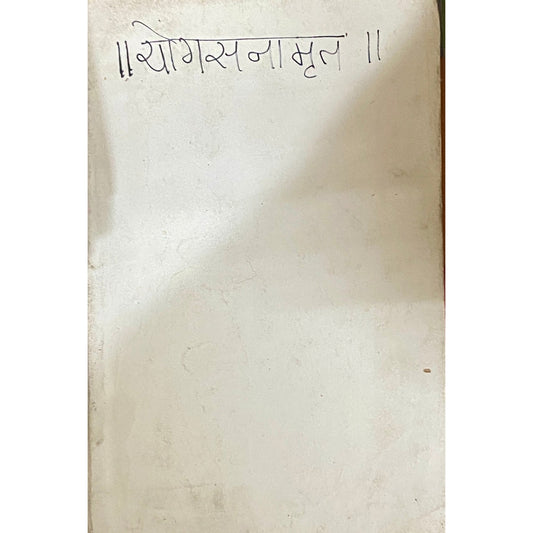 ॥ योगसनामृत ॥